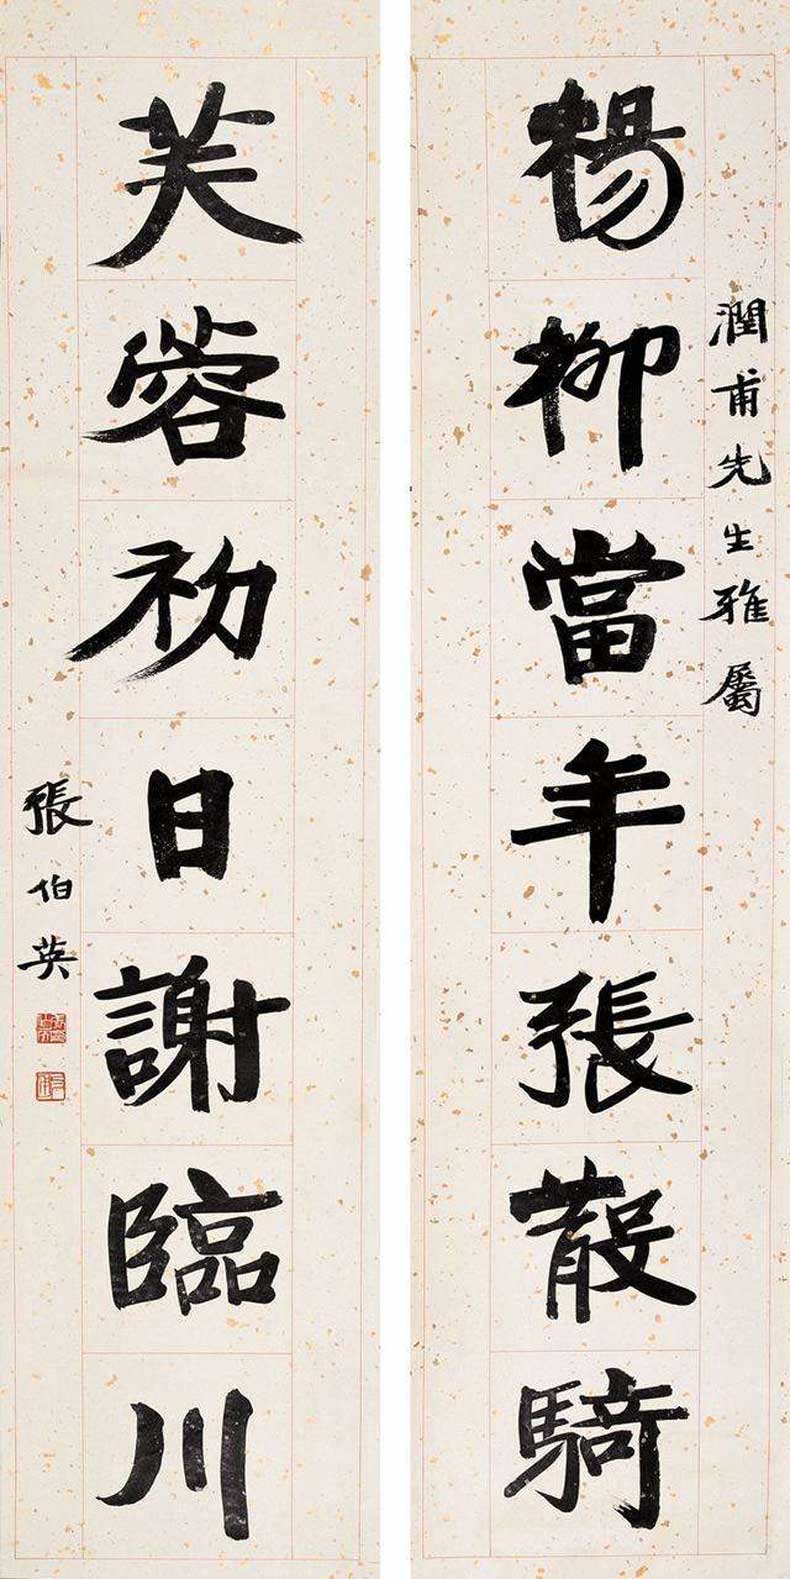 潤甫先生雅屬
楊柳當年張散騎
芙蓉初日謝臨川
張伯英